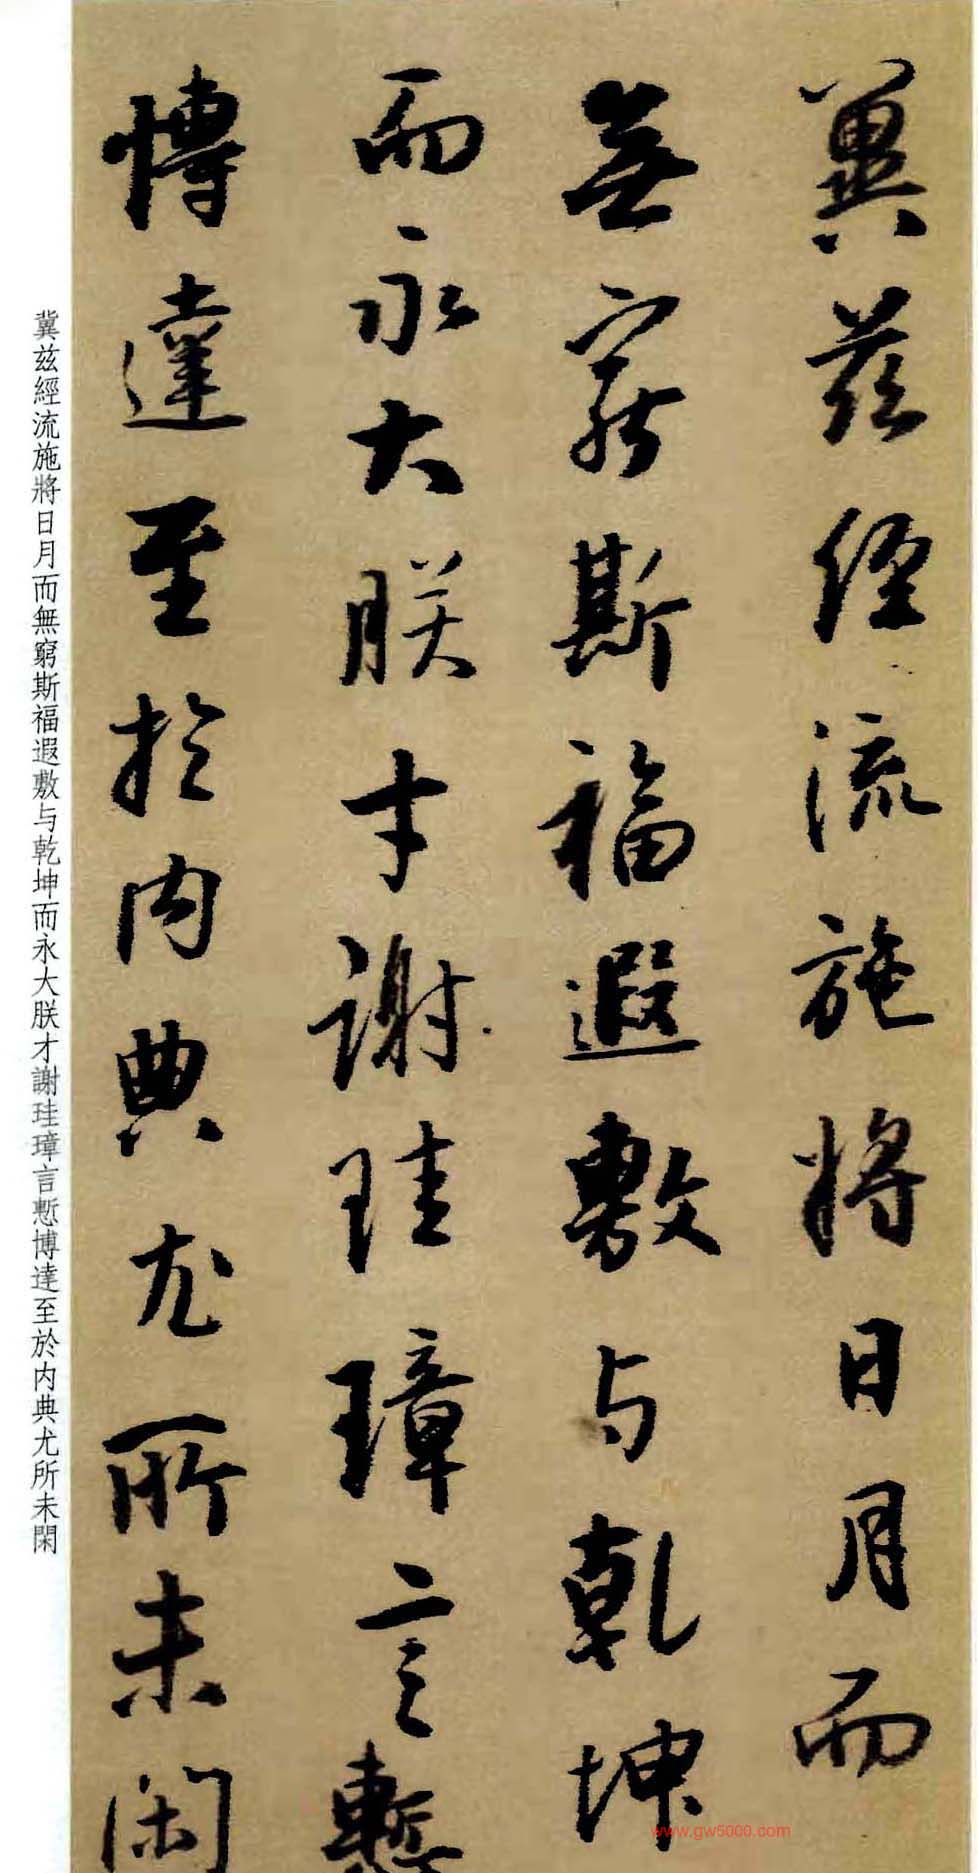 冀茲經流施將日月而
無窮斯福遐敷与乾坤
而永大朕才謝珪璋言慙
博達至於內典尤所未閑
冀兹經流施將日月而無窮斯福遐敷与乾坤而永大朕才謝珪璋言慙博達至於内典尤所未閑
www.gw5000.com